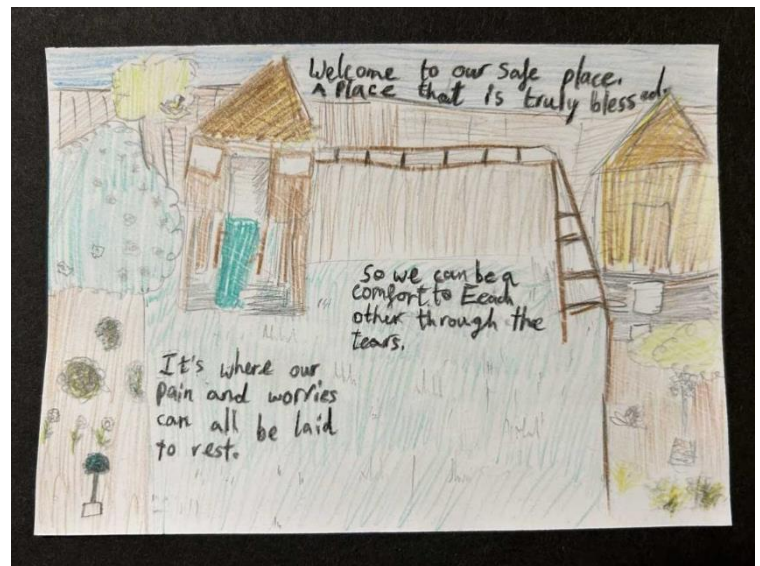 Welcome to our safe place.
A Place that is truly blessed.
So we can be a
comfort to Eeach
other through the
tears.
It's where our
pain and worries
can all be laid
to rest.